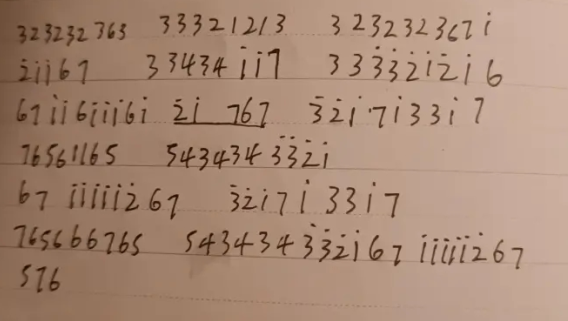 323232 363 33321213 323232367i̇
2̇i̇i̇67 33434 i̇i̇7 333̇3̇2̇i̇2̇i̇6
67i̇i̇6i̇i̇i̇6i̇ 2̇i̇ 767 3̇2̇i̇7i̇33i̇7
76561165 543434 3̇3̇2̇i̇
67 i̇i̇i̇i̇i̇2̇67 3̇2̇i̇7i̇33i̇7
765666765 5434343̇3̇2̇i̇67 i̇i̇i̇i̇i̇2̇67
576